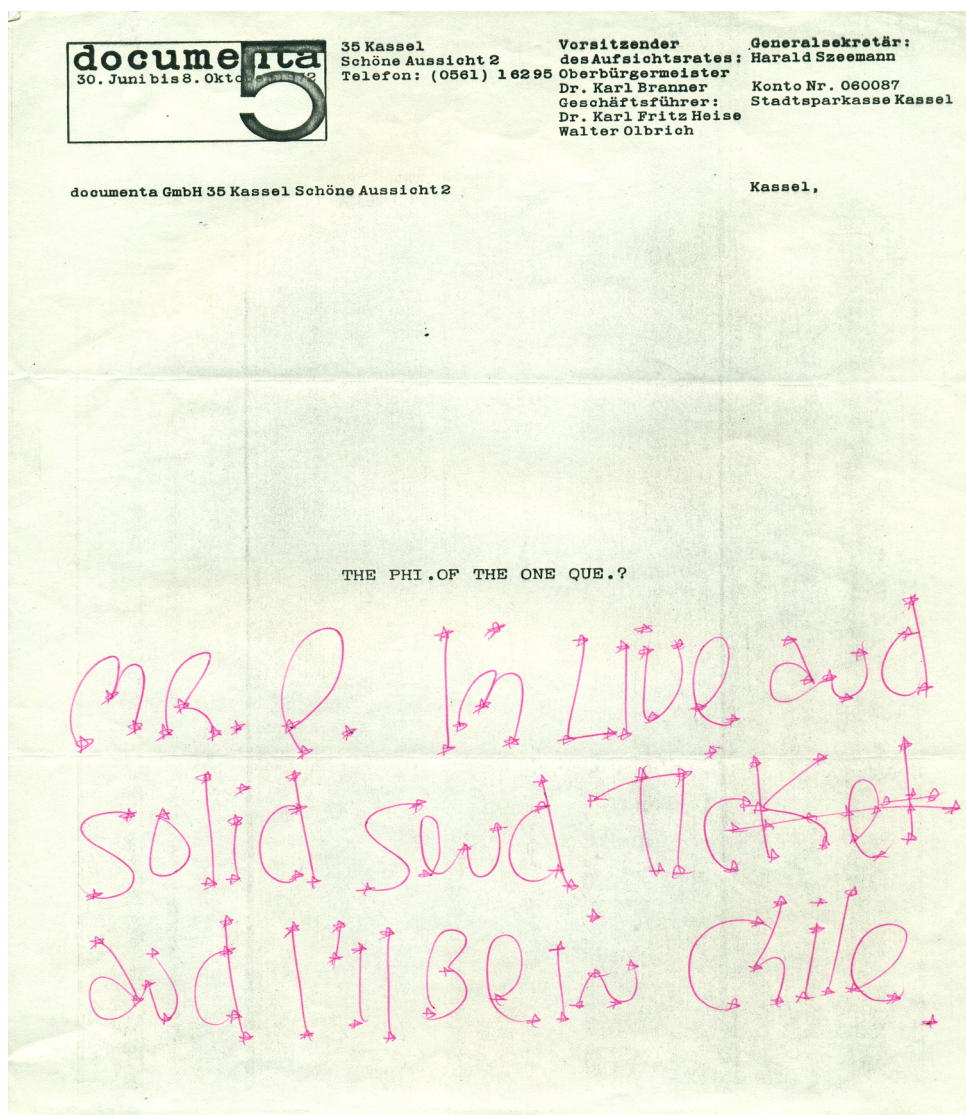 documenta 5
30. Juni bis 8. Oktober 1972
35 Kassel
Schöne Aussicht 2
Telefon: (0561) 1 62 95
Vorsitzender
des Aufsichtsrates:
Oberbürgermeister
Dr. Karl Branner
Geschäftsführer:
Dr. Karl Fritz Heise
Walter Olbrich
Generalsekretär:
Harald Szeemann
Konto Nr. 060087
Stadtsparkasse Kassel
documenta GmbH 35 Kassel Schöne Aussicht 2
Kassel,
THE PHI.OF THE ONE QUE.?
MR. P. I'm Live and
solid send TICKet
and I'll Be in Chile.